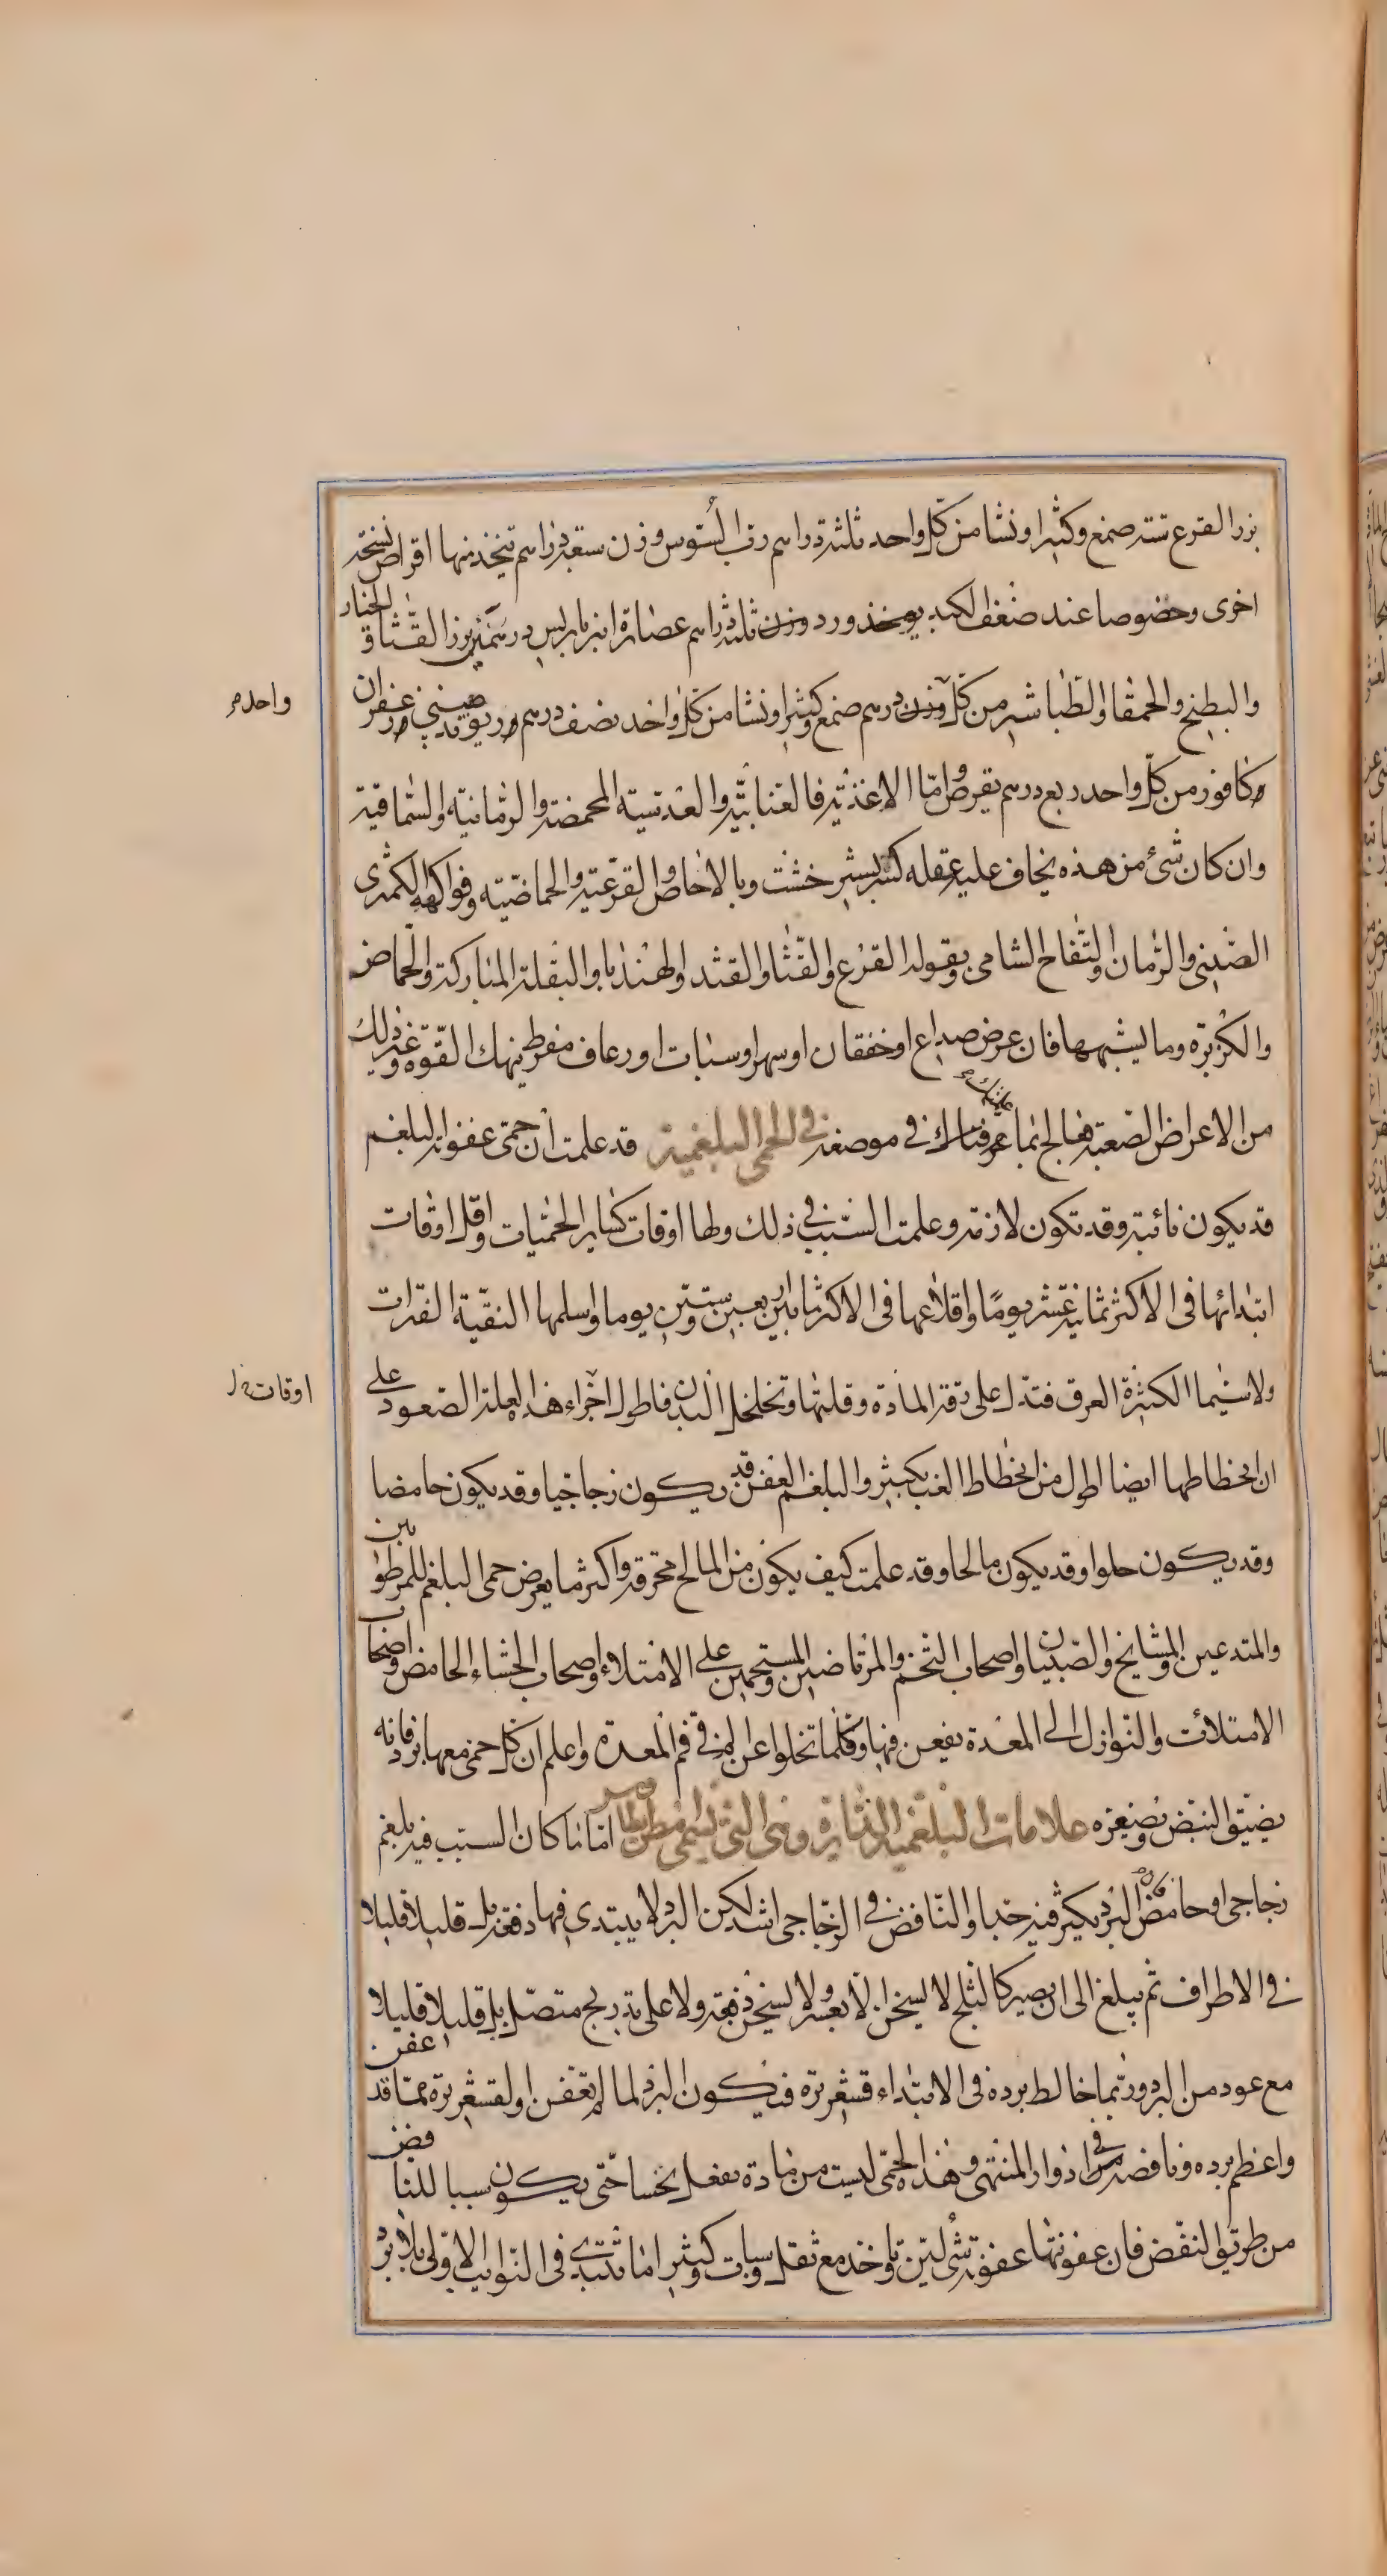 بزر القرع ستة صمغ وكثيرا ونشا من كل واحد ثلثة دراهم رب السوس وزن سبعة دراهم يتخذ منها اقراص نسخة
اخرى وخصوصا عند ضعف الكبد يوخذ ورد وزن ثلثة دراهم عصارة انبرباريس درهمين بزر القثا والخيار
والبطيخ والحمقا والطباشير من كل وزن درهم صمغ وكثيرا ونشا من كل واحد نصف درهم وريوند صيني وزعفران
واحد
وكافور من كل واحد ربع درهم يقرص واما الاغذية فالعنابية والعدسية المحمضة والرمانية والسماقية
وان كان شئ من هذه يخاف عليه عقله كسر بشير خشت وبالاجاص والقرعية والحماضية وفواكهه الكمثرى
الصيني والرمان والتفاح الشامي وبقوله القرع والقثا والقثد والهندبا والبقلة المباركة والحماض
والكزبرة وما يشبهها فان عرض صداع او خفقان او سهر او سبات او رعاف مفرط ينهك القوة وغير ذلك
من الاعراض الصعبة فعالج بما عرفناك في موضعه في الحمى البلغمية قد علمت ان حمى عفونة البلغم
قد يكون نائبة وقد تكون لازمة وعلمت السبب في ذلك ولها اوقات كساير الحميات واقل اوقات
ابتدائها في الاكثر ثمانية عشر يوما واقلاعها في الاكثر ما بين اربعين وستين يوما واسلمها النقية الفترات
ولا سيما الكثيرة العرق فتدل على رقة المادة وقلتها وتخلخل البدن فاطول اجزاء هذه العلة الصعود على
اوقات
ان انحطاطها ايضا اطول من انحطاط الغب بكثير والبلغم العفن قد يكون زجاجيا وقد يكون حامضا
وقد يكون حلوا وقد يكون مالحا وقد علمت كيف يكون من المالح محرقة واكثر ما يعرض حمى البلغم للمرطوبين
والمتدعين والمشايخ والصبيان واصحاب التخم والمرتاضين والمستحمين على الامتلاء واصحاب الجشاء الحامض واصحاب
الامتلائت والنوازل الى المعدة يعفن فيها وقلما تخلوا عن الم في فم المعدة واعلم ان كل حمى معها برد فانه
يضيق النبض ويصغره علامات البلغمية الدائرة وهي التي تسمى امفيمارينوس اما ما كان السبب فيه بلغم
زجاجي او حامض فان البرد يكثر فيه جدا والنافض في الزجاجي اشد لكن البرد لا يبتدي فيها دفعة بل قليلا قليلا
في الاطراف ثم يبلغ الى ان يصير كالثلج لا يسخن الا بعسر ولا يسخن دفعة ولا على تدريج متصل بل قليلا قليلا
مع عود من البرد وربما خالط برده في الابتداء قشعريرة فيكون البرد لما لم يعفن والقشعريرة مما قد عفن
واعظم برده ونافضه في ادوار المنتهى وهذه الحمى ليست من مادة تفعل نخسا حتى يكون سببا للنافض
من طريق النفض فان عفونتها عفونة شئ لين تاوخذ مع ثقل وسبات وكثيرا ما تبتدي في النوايب الاولى بلا برد